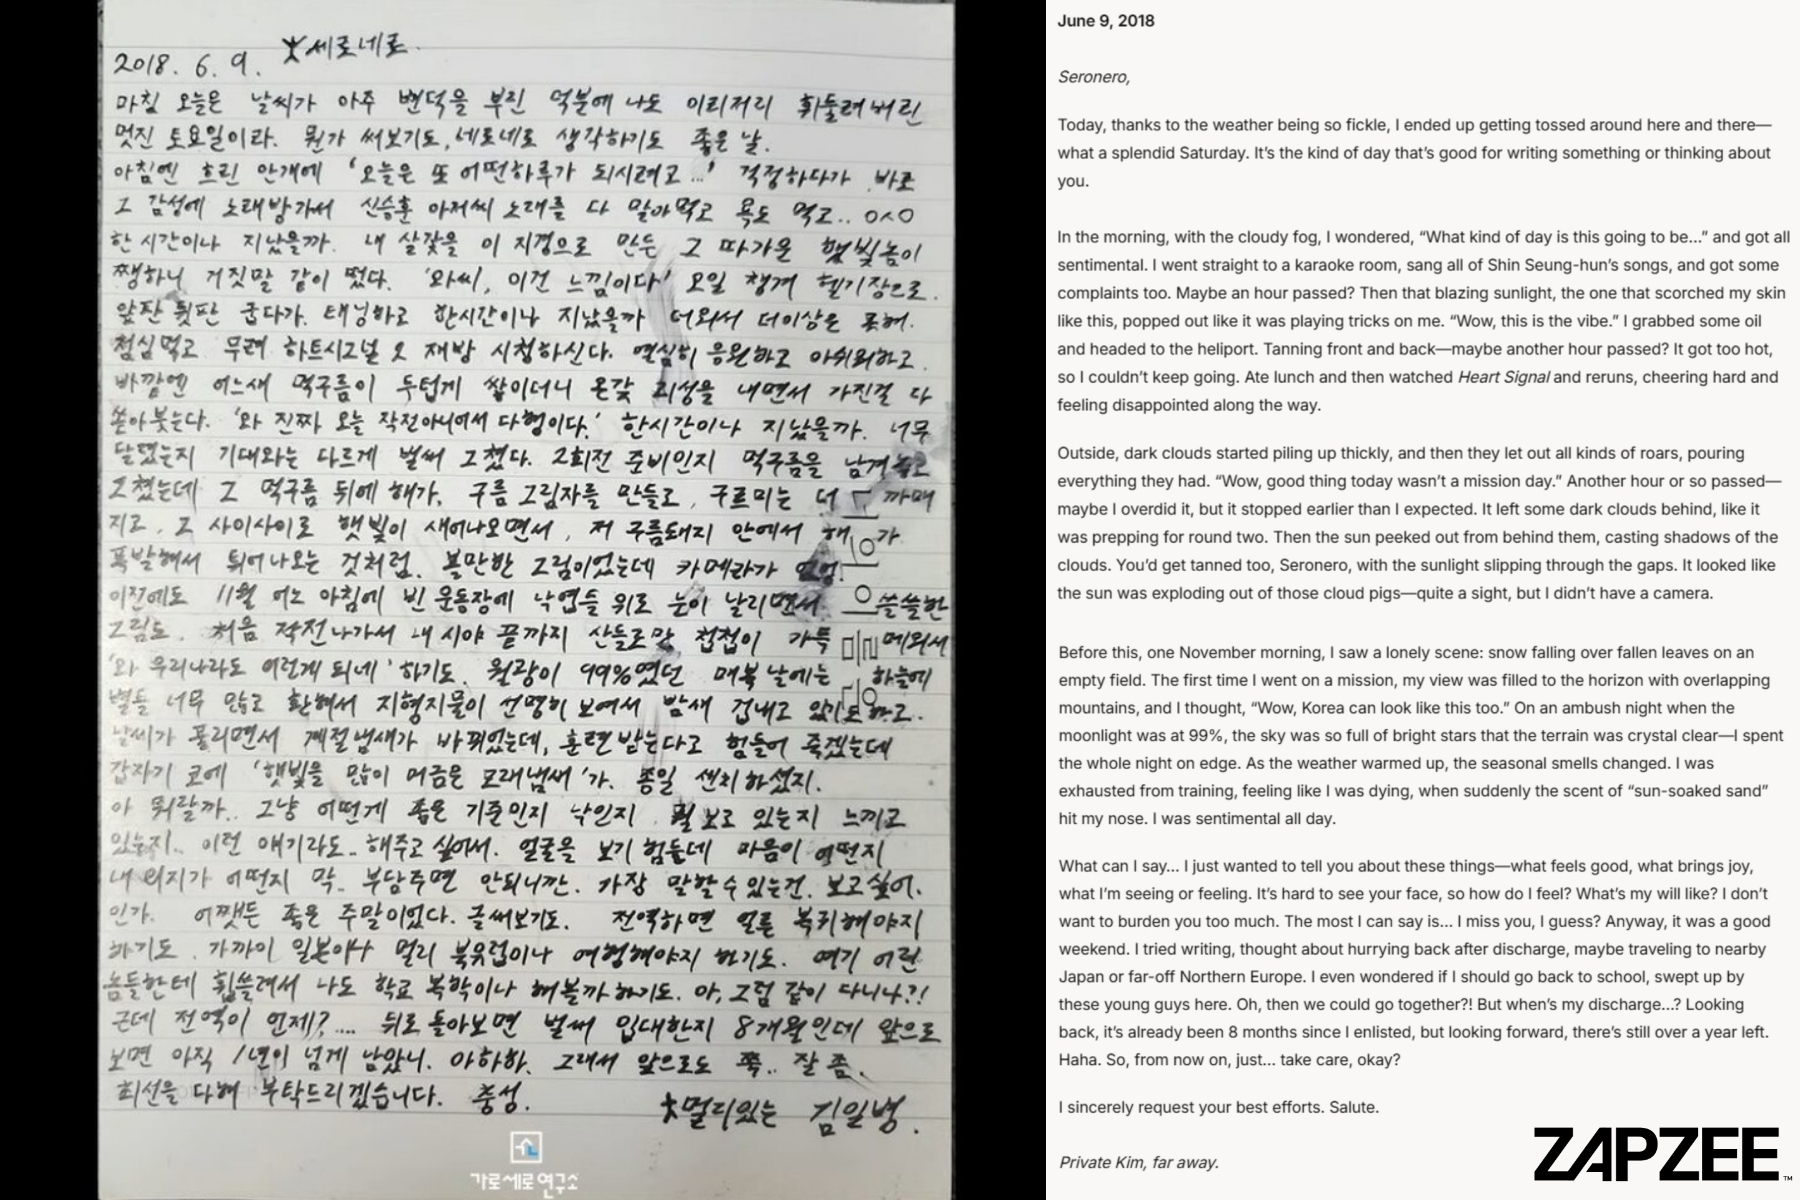 2018. 6. 9. 세로네로.
마침 오늘은 날씨가 아주 변덕을 부린 덕분에 나도 이리저리 휘둘려버린
멋진 토요일이라. 뭔가 써보기도, 네로네로 생각하기도 좋은 날.
아침엔 흐린 안개에 '오늘은 또 어떤하루가 되시려고...' 걱정하다가 바로
그 감성에 노래방가서 신승훈 아저씨 노래를 다 말아먹고 욕도 먹고.. ㅇㅅㅇ
한시간이나 지났을까. 내 살갗을 이 지경으로 만든 그 따가운 햇빛놈이
쨍하니 거짓말 같이 떴다. '와씨, 이건 느낌이다' 오일 챙겨 헬기장으로.
앞판 뒷판 굽다가. 태닝하고 한시간이나 지났을까 더워서 더이상은 못해.
점심먹고 무려 하트시그널 2 재방 시청하신다. 열심히 응원하고 아쉬워하고.
바깥엔 어느새 먹구름이 두텁게 쌓이더니 온갖 괴성을 내면서 가진걸 다
쏟아붓는다. '와 진짜 오늘 작전아니어서 다행이다.' 한시간이나 지났을까. 너무
달랬는지 기대와는 다르게 벌써 그쳤다. 2회전 준비인지 먹구름을 남겨놓고
그쳤는데 그 먹구름 뒤에 해가, 구름 그림자를 만들고, 구르미는 더 까매
지고, 그 사이사이로 햇빛이 새어나오면서, 저 구름돼지 안에서 해가
폭발해서 튀어나오는 것처럼. 볼만한 그림이었는데 카메라가
이전에도 11월 어느 아침에 빈 운동장에 낙엽들 위로 눈이 날리면서 쓸쓸한
그림도. 처음 작전나가서 내 시야 끝까지 산들로만 첩첩이 가득 메워서
'와 우리나라도 이렇게 되네' 하기도. 월광이 99%였던 매복날에는 하늘에
별들 너무 많고 환해서 지형지물이 선명히 보여서 밤새 겁내고 있기도 하고.
날씨가 풀리면서 계절냄새가 바뀌었는데, 훈련받는다고 힘들어 죽겠는데
갑자기 코에 '햇빛을 많이 머금은 모래냄새'가. 종일 센치하셨지.
아 뭐랄까.. 그냥 어떤게 좋은 기준인지 낙인지 뭘 보고 있는지 느끼고
있는지.. 이런 얘기라도.. 해주고 싶어서. 얼굴을 보기 힘든데 마음이 어떤지
내 의지가 어떤지 막.. 부담주면 안되니깐. 가장 말할수있는건. 보고싶어.
인가. 어쨌든 좋은 주말이었다. 글써보기도. 전역하면 얼른 복귀해야지
하기도. 가까이 일본이나 멀리 북유럽이나 여행해야지 하기도. 여기 어린
놈들한테 휩쓸려서 나도 학교 복학이나 해볼까 하기도. 아, 그럼 같이 다니나?!
근데 전역이 언제?.... 뒤로 돌아보면 벌써 입대한지 8개월인데 앞으로
보면 아직 1년이 넘게 남았니. 아하하. 그래서 앞으로도 쭉.. 잘 좀.
최선을 다해 부탁드리겠습니다. 충성.
멀리있는 김일병.
가로세로연구소
June 9, 2018
Seronero,
Today, thanks to the weather being so fickle, I ended up getting tossed around here and there—
what a splendid Saturday. It's the kind of day that's good for writing something or thinking about
you.
In the morning, with the cloudy fog, I wondered, “What kind of day is this going to be...” and got all
sentimental. I went straight to a karaoke room, sang all of Shin Seung-hun's songs, and got some
complaints too. Maybe an hour passed? Then that blazing sunlight, the one that scorched my skin
like this, popped out like it was playing tricks on me. “Wow, this is the vibe.” I grabbed some oil
and headed to the heliport. Tanning front and back—maybe another hour passed? It got too hot,
so I couldn't keep going. Ate lunch and then watched Heart Signal and reruns, cheering hard and
feeling disappointed along the way.
Outside, dark clouds started piling up thickly, and then they let out all kinds of roars, pouring
everything they had. “Wow, good thing today wasn't a mission day.” Another hour or so passed—
maybe I overdid it, but it stopped earlier than I expected. It left some dark clouds behind, like it
was prepping for round two. Then the sun peeked out from behind them, casting shadows of the
clouds. You'd get tanned too, Seronero, with the sunlight slipping through the gaps. It looked like
the sun was exploding out of those cloud pigs—quite a sight, but I didn't have a camera.
Before this, one November morning, I saw a lonely scene: snow falling over fallen leaves on an
empty field. The first time I went on a mission, my view was filled to the horizon with overlapping
mountains, and I thought, “Wow, Korea can look like this too.” On an ambush night when the
moonlight was at 99%, the sky was so full of bright stars that the terrain was crystal clear—I spent
the whole night on edge. As the weather warmed up, the seasonal smells changed. I was
exhausted from training, feeling like I was dying, when suddenly the scent of “sun-soaked sand”
hit my nose. I was sentimental all day.
What can I say... I just wanted to tell you about these things—what feels good, what brings joy,
what I'm seeing or feeling. It's hard to see your face, so how do I feel? What's my will like? I don't
want to burden you too much. The most I can say is... I miss you, I guess? Anyway, it was a good
weekend. I tried writing, thought about hurrying back after discharge, maybe traveling to nearby
Japan or far-off Northern Europe. I even wondered if I should go back to school, swept up by
these young guys here. Oh, then we could go together?! But when's my discharge...? Looking
back, it's already been 8 months since I enlisted, but looking forward, there's still over a year left.
Haha. So, from now on, just... take care, okay?
I sincerely request your best efforts. Salute.
Private Kim, far away.
ZAPZEE™